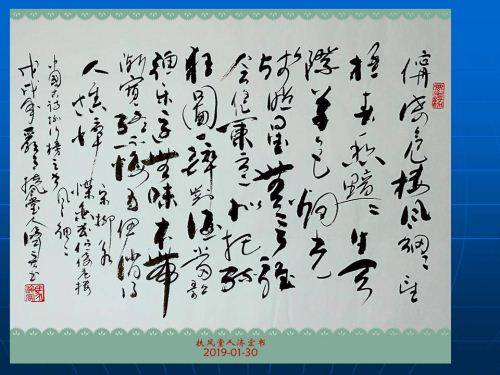 伫倚危楼风细々望
极春愁黯々生天
际草色烟光
残照里无言谁
会凭阑意拟把疏
狂图一醉对酒当歌
强乐还无味衣带
渐宽终不悔为伊消得
人憔悴
宋柳永
蝶恋花伫倚危楼
风细々
戊戌年
扶风堂人济宏书
扶风堂人济宏书
2019-01-30